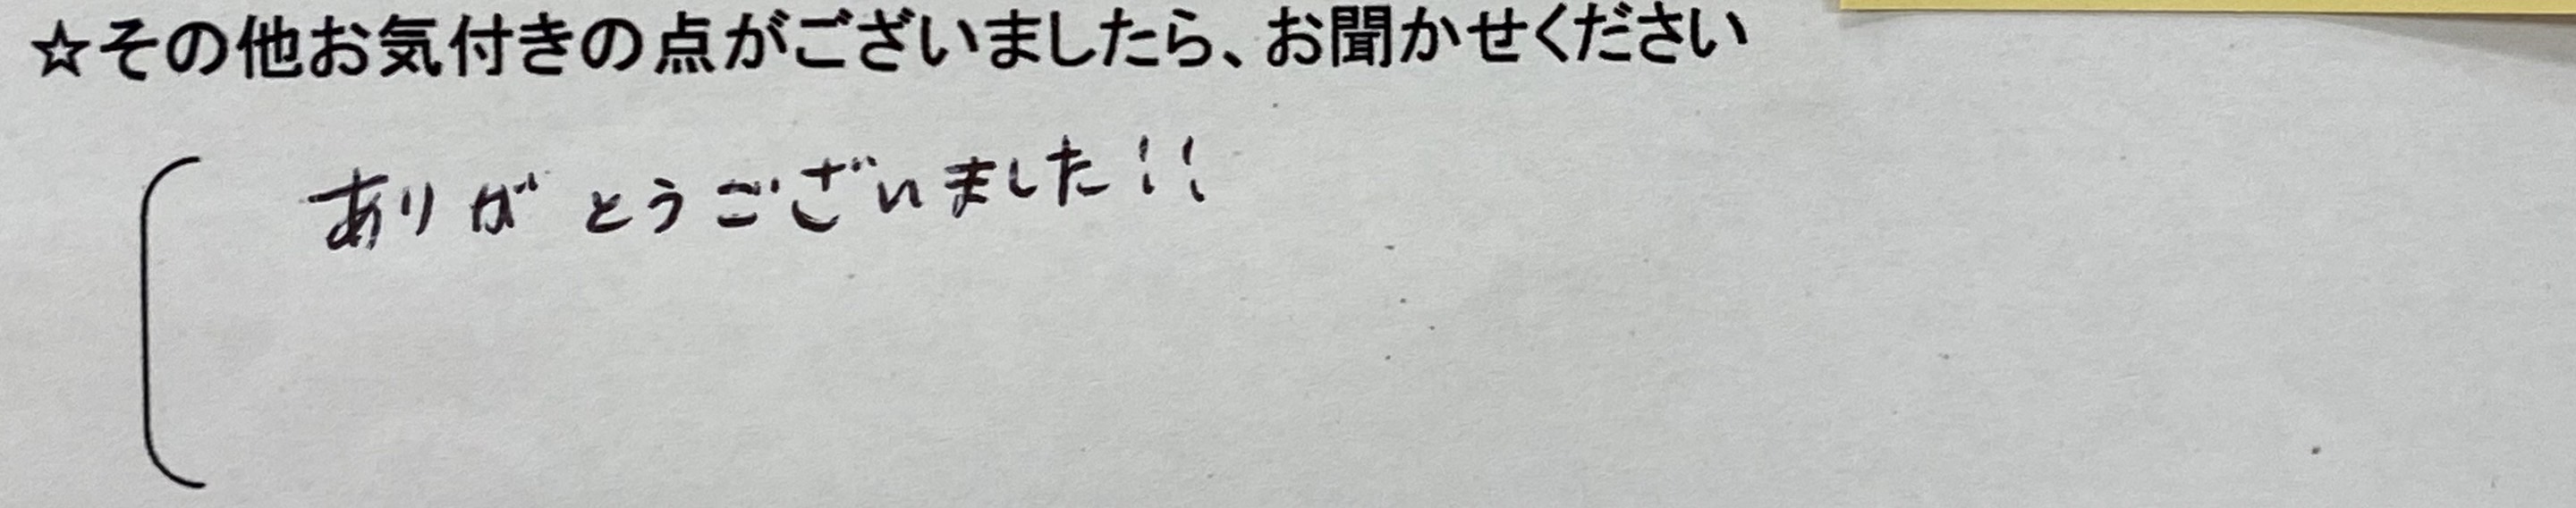 ☆その他お気付きの点がございましたら、お聞かせください
ありがとうございました!!